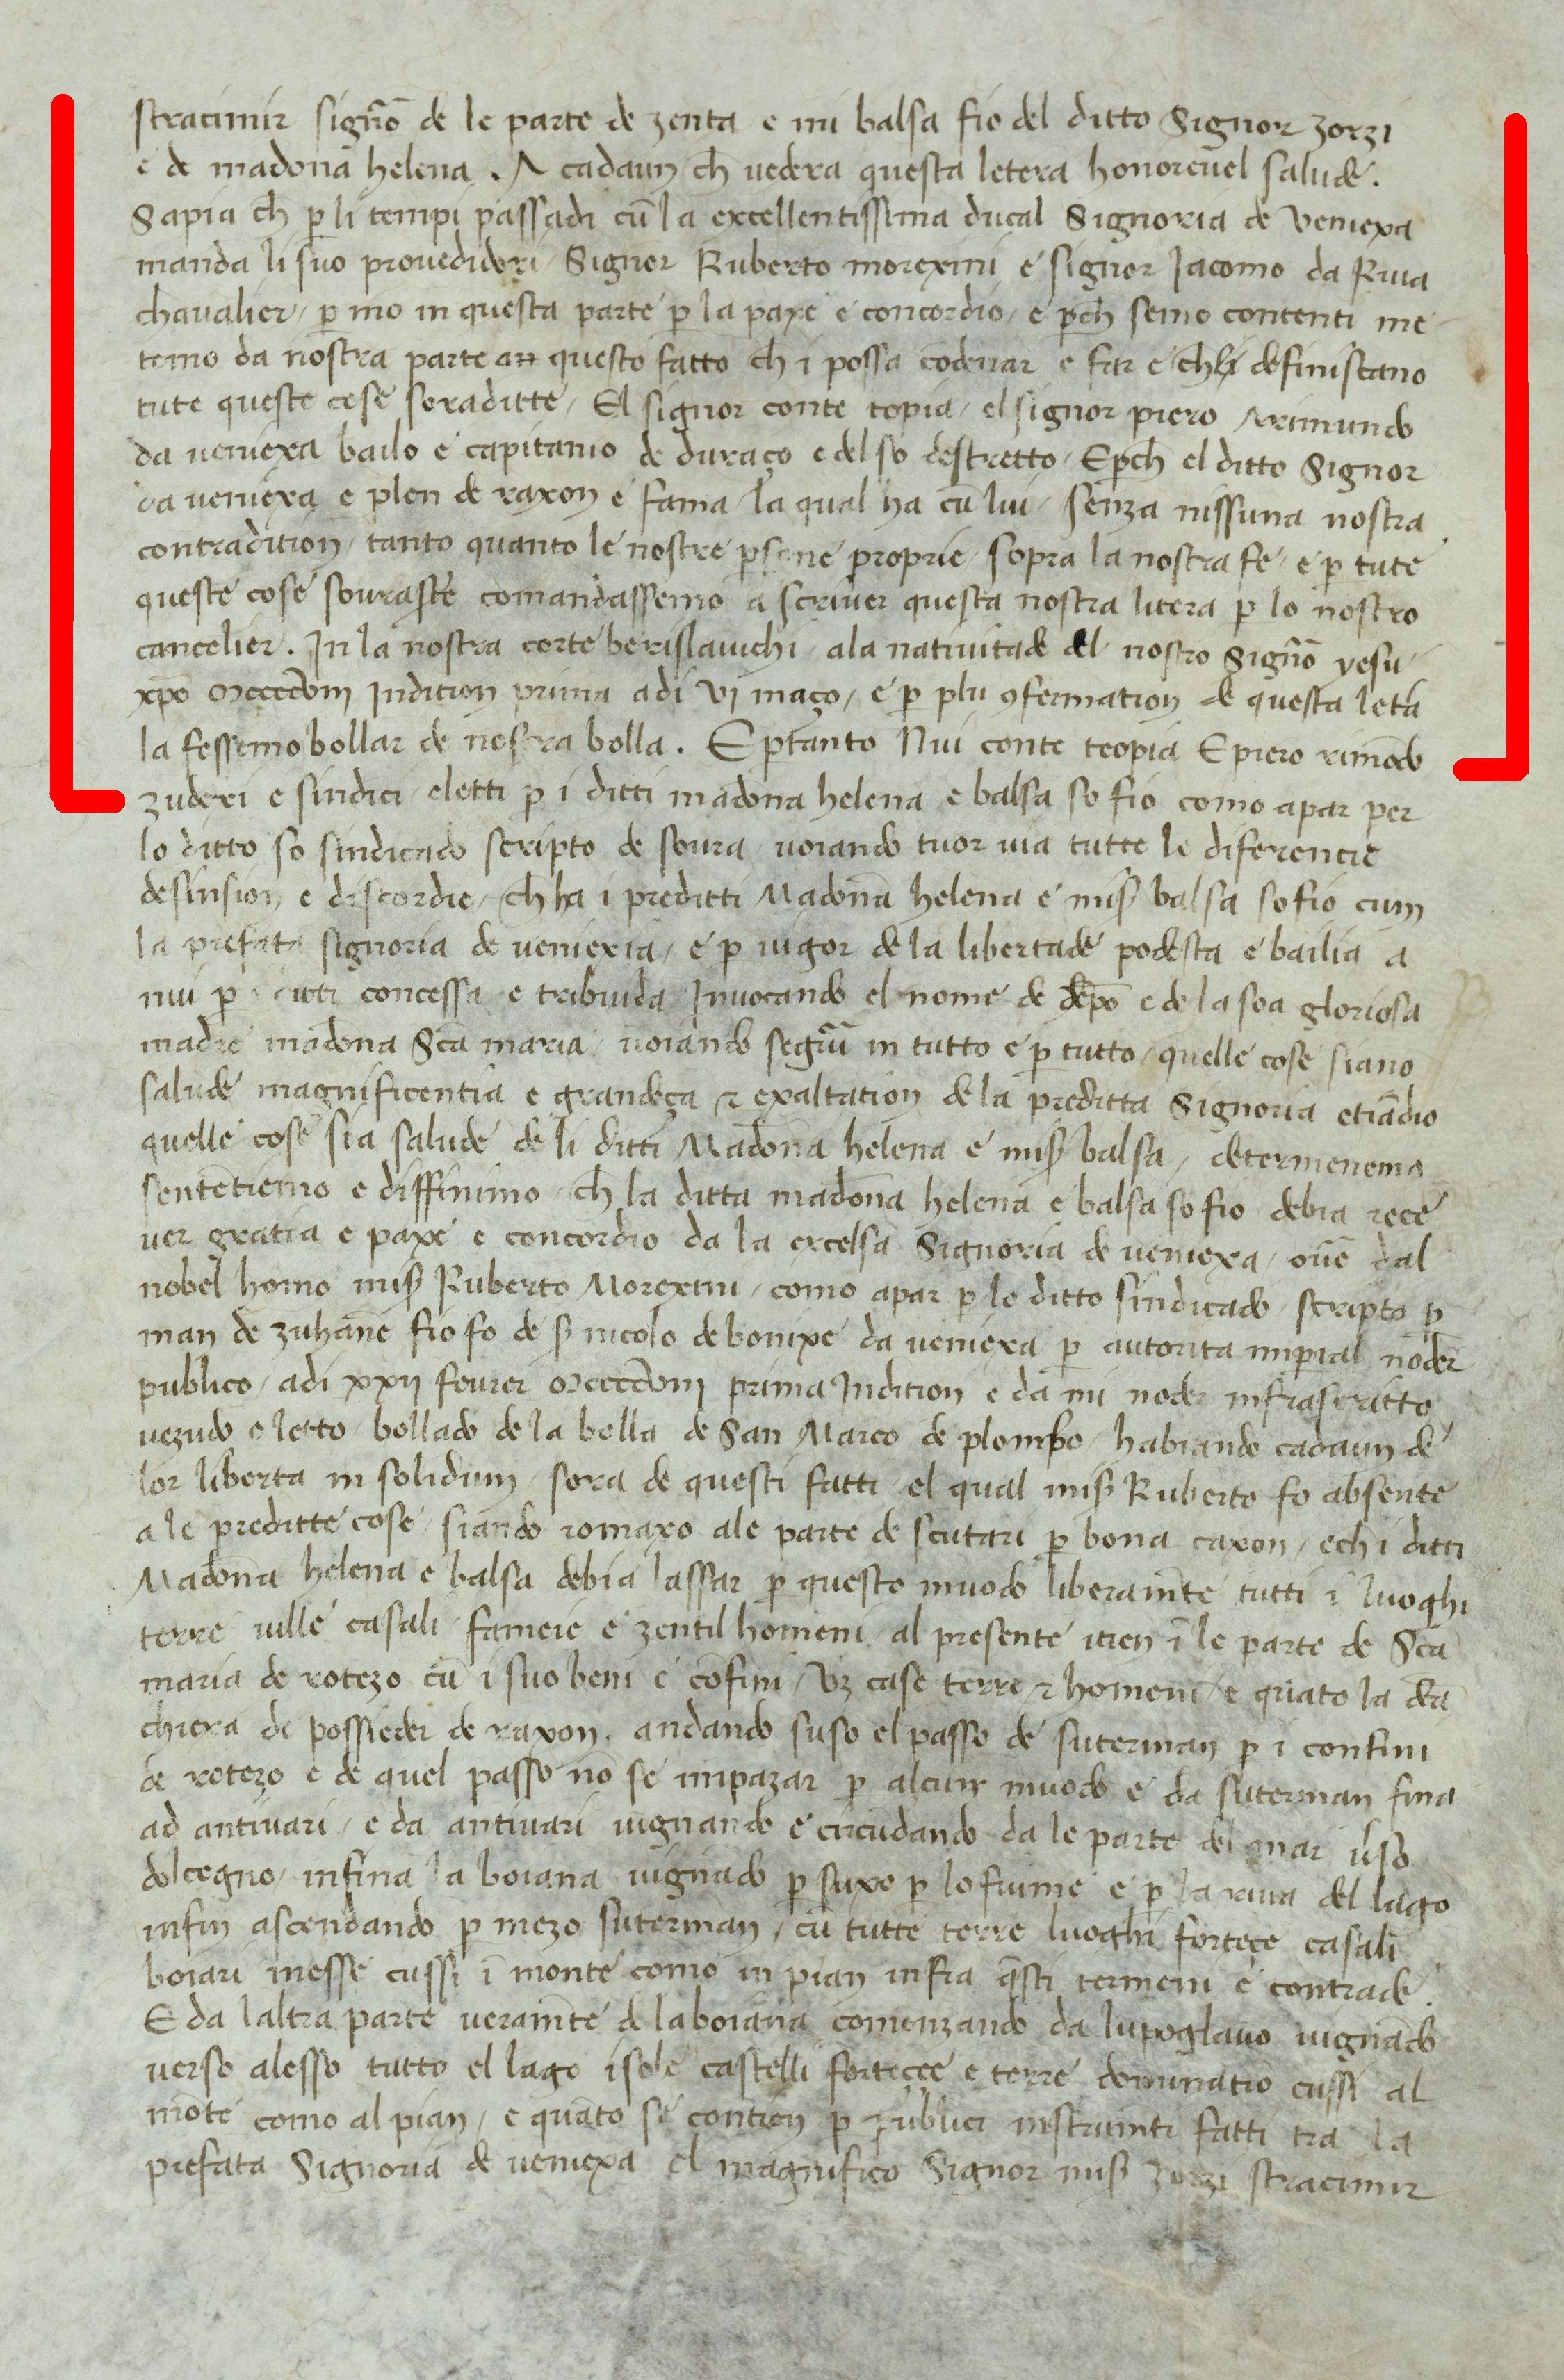 stracimir sign̄o de le parte de zenta e mi balsa fio del ditto Signor zorzi
e de madona helena . A cadaun ch̄ vedera questa letera honorevel salude .
Sapia ch̄ p̱ li tempi passadi cū la excellentissima ducal Signoria de veniexa
manda li suo provedidori / Signor Ruberto morexini e signor Jacomo da Riva
chavalier / p̱ mo in questa parte p̱ la paxe e concordio / e p̱ch̄ semo contenti me-
temo da nostra parte an questo fatto ch̄ i possa c̄odenar e far e ch̄ li definiscano
tute queste cose soraditte / El signor conte topia / el signor piero Arimundo
da veniexa bailo e capitanio de duraço e del so destretto / Ep̱ch̄ el ditto Signor
da veniexa e plen de raxon e fama / la qual ha cū lui / senza nissuna nostra
contradition / tanto quanto le nostre p̱sone proprie / sopra la nostra fe / e p̱ tute
queste cose sovraste comandassemo a scriver questa nostra litera p̱ lo nostro
cancelier . In la nostra corte berislavichi / ala nativitade del nostro Sign̄o yesu
xp̄o Mccccviii Indition prima adi vi maço / e p̱ plu ꝯfermation de questa let̄a
la fessemo bollar de nostra bolla . E p̱tanto Nui conte teopia E piero rim̄odo
zuderi e sindici / eletti p̱ i ditti madona helena e balsa so fio como apar per
lo ditto so sindicado scripto de sovra / voiando tuor via tutte le diferencie
desinsion e discordie / ch̄ ha i preditti Madon̄a helena e mis̄ balsa so fio cum
la prefata signoria de veniexia / e p̱ vigor de la libertade podesta e bailia a
nui p̱ i ditti concessa e tribuida Invocando el nome de dep̄o e de la soa gloriosa
madre madona Sc̄a maria / voiando seguir in tutto e p̱ tutto / quelle cose siano
salude magnificentia e grandeça ⁊ exaltation de la preditta Signoria eti̅adio
quelle cose sia salude de li ditti Madon̄a helena e mis̄ balsa / determenemo
sent̄etiemo e diffinimo / ch̄ la ditta madon̄a helena e balsa so fio debia rece
ver gratia e paxe e concordio da la excelsa Signoria de veniexa / ov̄e dal
nobel homo mis̄ Ruberto Morexini / como apar p̱ lo ditto sindicado / scripto p̱
man de zuhan̄e fio fo de s̄ nicolo de bonixe da veniexa p̱ autorita imp̱ial nod̄er
publico / adi xxii fevrer Mccccviii prima Indition e da mi noder infrascritto
vezudo e letto / bollado de la bolla de San Marco de plombo / habiando cadaun de
lor liberta in solidum / sora de questi fatti / el qual mis̄ Ruberto fo absente
a le preditte cose / siando romaxo ale parte de scutari p̱ bona caxon / e ch̄ i ditti
Madon̄a helena e balsa debia lassar p̱ questo muodo liberam̄te tutti i luoghi
terre ville casali / fameie e zentil homeni / al presente itien ī le parte de Sc̄a
maria de rotezo cū i suo beni e c̄ofini / vz case terre ⁊ homeni / e qūato la d̄ca
chiexa di possieder de raxon . andando suso el passo de suterman p̱ i confini
de rotezo e de quel passo nō se impazar p̱ alcun muodo e da suterman fina
ad antivari / e da antivari vignando e circūdando da le parte del mar v̄so
dolcegno / infina la boiana vignādo p̱ suxo p̱ lo fiume e p̱ la riva del lago
infin ascendando p̱ mezo suterman / cū tutte terre luoghi forteçe casali
boiari messe cussi ī monte como in pian infra q̄sti termeni e contrade .
E da laltra parte veram̄te de la boiana comenzando da lupoglavo vignādo
verso alesso tutto el lago isole castelli forteçce e terre dominatiō cussi al
mōte como al pian / e quāto se contien p̱ publici instrum̄ti fatti tra la
prefata Signoria de veniexa el magnifico Signor mis̄ zorzi stracimir